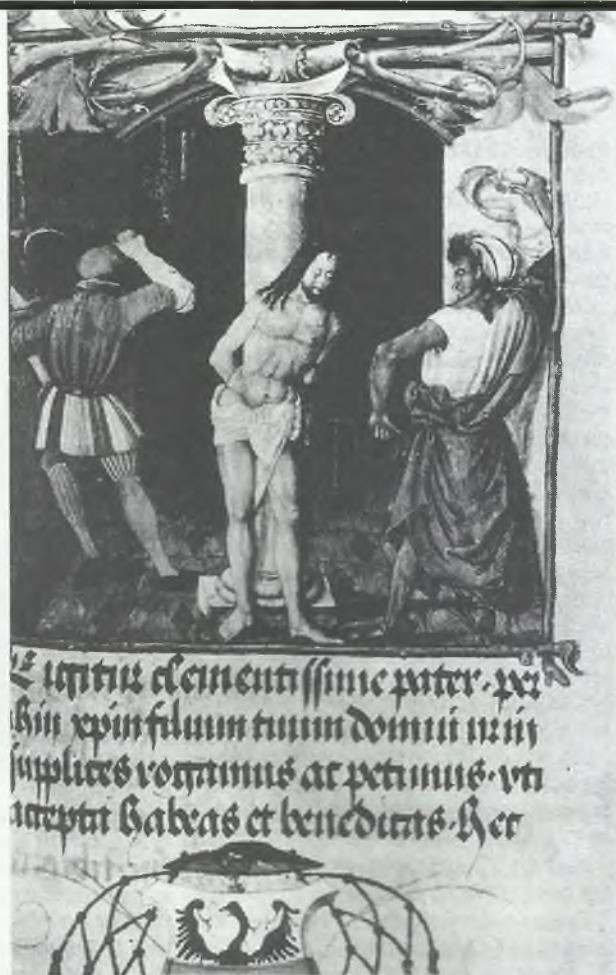 igitur clementissime pater · per
ihm xpm filium tuum domiū nrm
supplices rogamus ac petimus · vti
accepta habeas et benedicas · hec